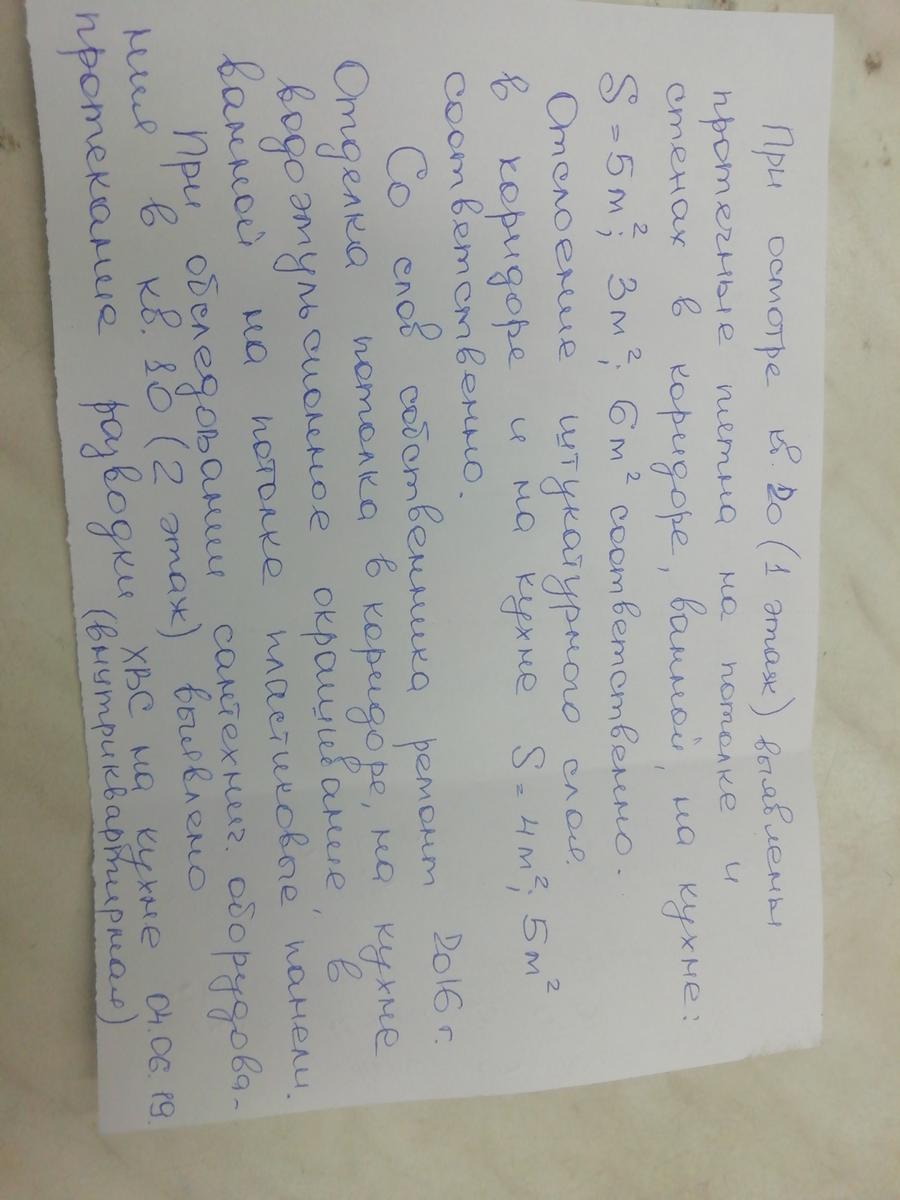 При осмотре кв. 20 (1 этаж) выявлены
протечные пятна на потолке и
стенах в коридоре, ванной, на кухне:
S = 5 м²; 3 м²; 6 м² соответственно.
Отслоение штукатурного слоя
в коридоре и на кухне S = 4 м²; 5 м²
соответственно.
Со слов собственника ремонт 2016 г.
Отделка потолка в коридоре, на кухне
водоэмульсионное окрашивание, в
ванной на потолке пластиковые панели.
При обследовании сантехнич. оборудова-
ния в кв. 80 (2 этаж) выявлено
протекание разводки ХВС на кухне 04.06.19.
(внутриквартирная)